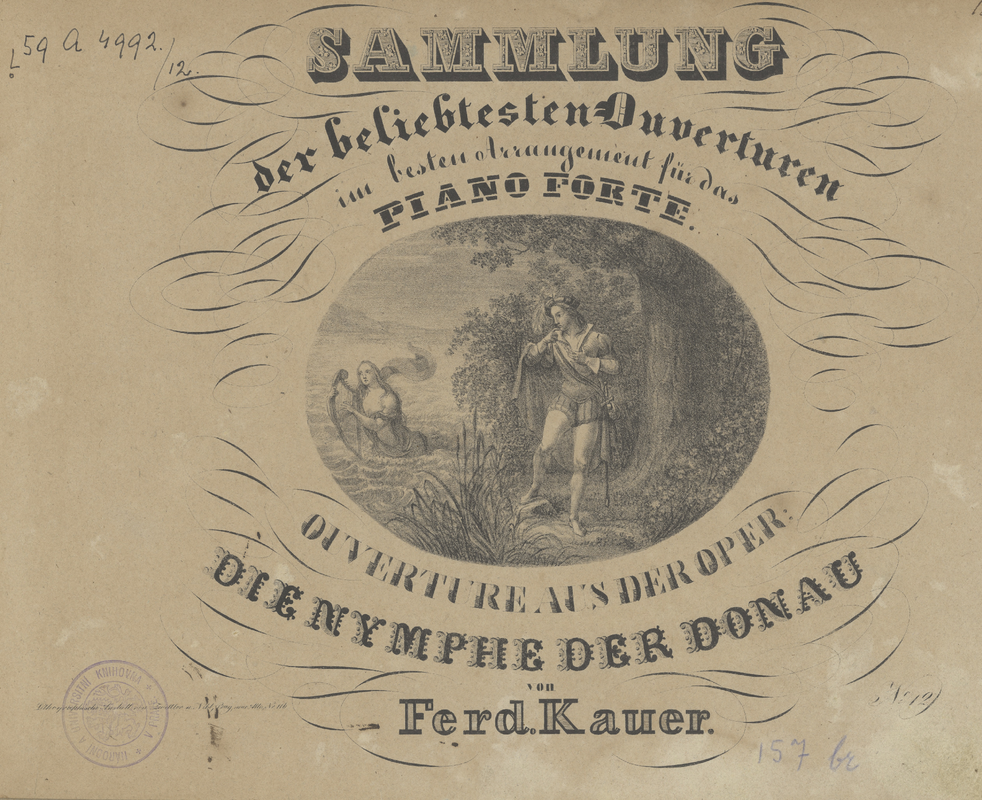 59 A 4992./
12.
SAMMLUNG
der beliebtesten Ouverturen
im besten Arrangement für das
PIANO FORTE.
OUVERTURE AUS DER OPER:
DIE NYMPHE DER DONAU
von
Ferd. Kauer.
Lithographische Anstalt
No 12
KNIHOVNA
NÁRODNÍ A UNIVERSITNÍ
157 br